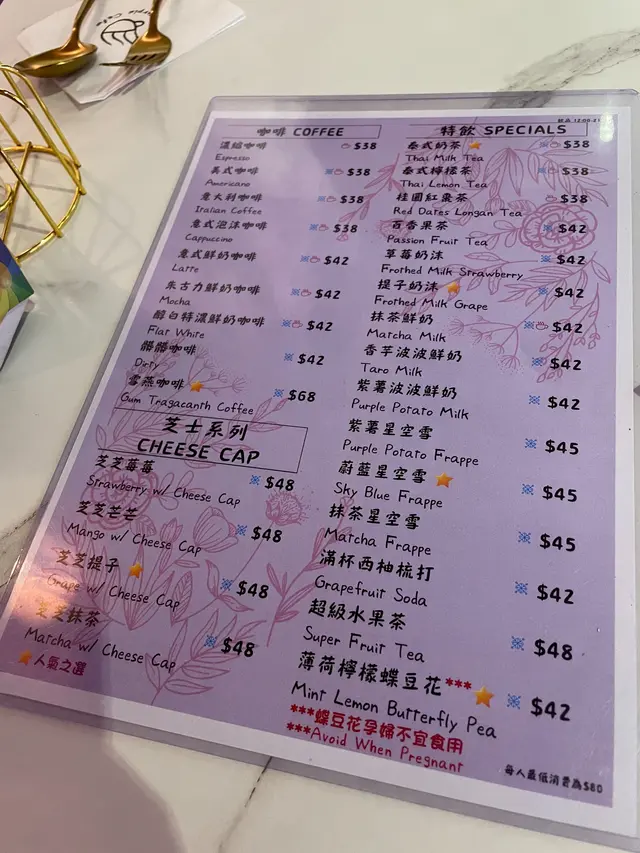 咖啡 COFFEE
濃縮咖啡 $38
Espresso
美式咖啡 $38
Americano
意大利咖啡 $38
Italian Coffee
意式泡沫咖啡 $38
Cappuccino
意式鮮奶咖啡 $42
Latte
朱古力鮮奶咖啡 $42
Mocha
醇白特濃鮮奶咖啡 $42
Flat White
髒髒咖啡 $42
Dirty
雪燕咖啡 $68
Gum Tragacanth Coffee
芝士系列
CHEESE CAP
芝芝莓莓 $48
Strawberry w/ Cheese Cap
芝芝芒芒 $48
Mango w/ Cheese Cap
芝芝提子 $48
Grape w/ Cheese Cap
芝芝抹茶 $48
Matcha w/ Cheese Cap
人氣之選
特飲 SPECIALS
泰式奶茶 $38
Thai Milk Tea
泰式檸檬茶 $38
Thai Lemon Tea
桂圓紅棗茶 $38
Red Dates Longan Tea
百香果茶 $42
Passion Fruit Tea
草莓奶沫 $42
Frothed Milk Strawberry
提子奶沫 $42
Frothed Milk Grape
抹茶鮮奶 $42
Matcha Milk
香芋波波鮮奶 $42
Taro Milk
紫薯波波鮮奶 $42
Purple Potato Milk
紫薯星空雪 $45
Purple Potato Frappe
蔚藍星空雪 $45
Sky Blue Frappe
抹茶星空雪 $45
Matcha Frappe
滿杯西柚梳打 $42
Grapefruit Soda
超級水果茶 $48
Super Fruit Tea
薄荷檸檬蝶豆花*** $42
Mint Lemon Butterfly Pea
***蝶豆花孕婦不宜食用
***Avoid When Pregnant
每人最低消費為$80